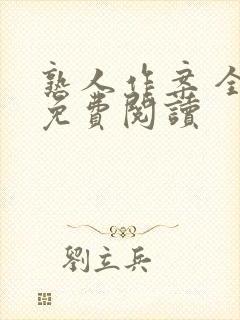 熟人作案全
免費閱讀
劉立兵